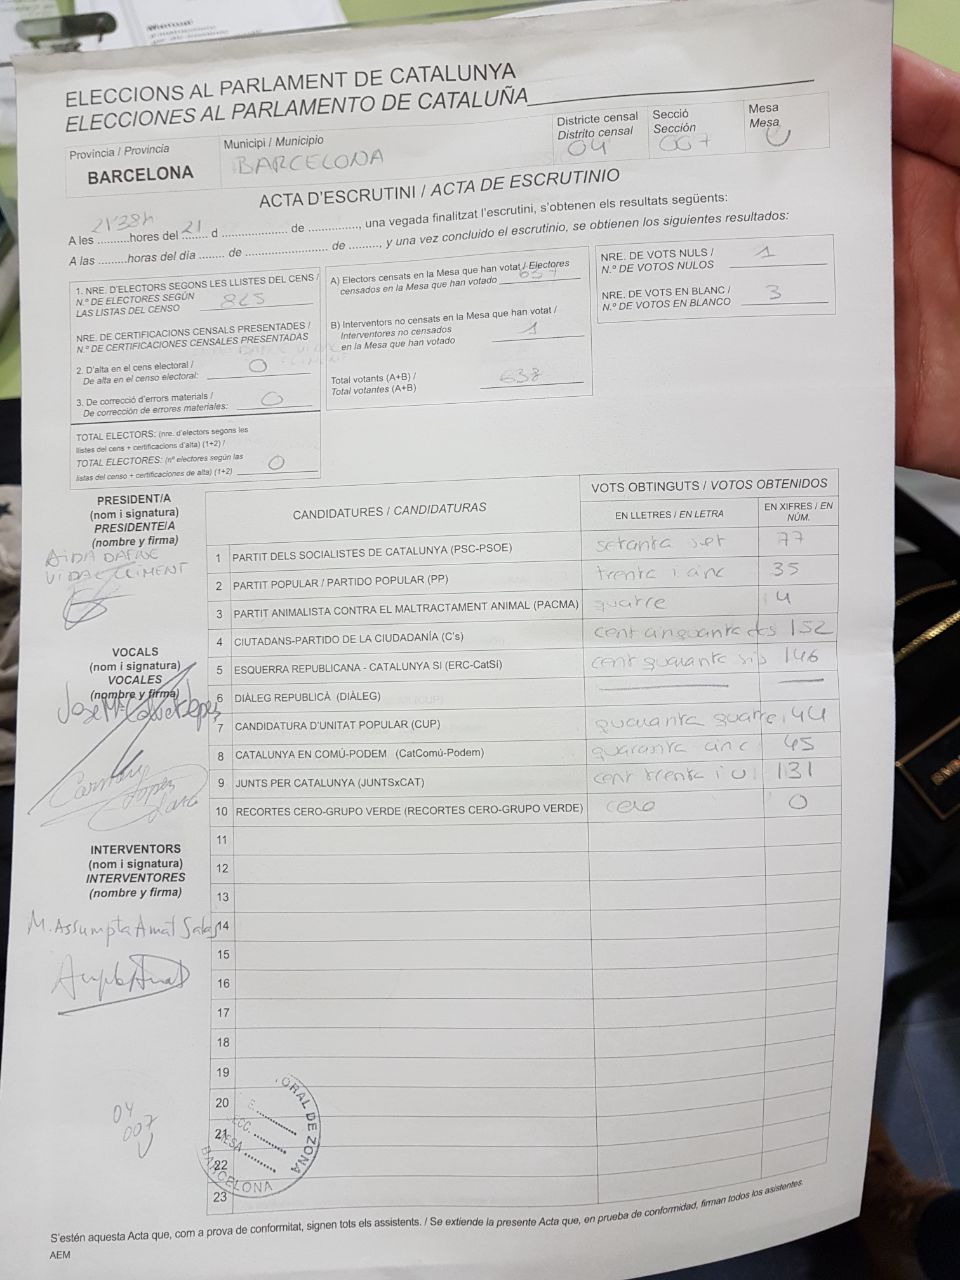 ELECCIONS AL PARLAMENT DE CATALUNYA
ELECCIONES AL PARLAMENTO DE CATALUÑA
Provincia / Provincia
BARCELONA
Municipi / Municipio
BARCELONA
Districte censal
Distrito censal
04
Secció
Sección
007
Mesa
Mesa
U
ACTA D'ESCRUTINI / ACTA DE ESCRUTINIO
A les 21'38h hores del 21 d ............ de ............, una vegada finalitzat l'escrutini, s'obtenen els resultats següents:
A las .........horas del día ....... de ....................... de ........, y una vez concluido el escrutinio, se obtienen los siguientes resultados:
1. NRE. D'ELECTORS SEGONS LES LLISTES DEL CENS /
N.º DE ELECTORES SEGÚN
LAS LISTAS DEL CENSO 825
NRE. DE CERTIFICACIONS CENSALS PRESENTADES /
N.º DE CERTIFICACIONES CENSALES PRESENTADAS
2. D'alta en el cens electoral /
De alta en el censo electoral: 0
3. De correcció d'errors materials /
De corrección de errores materiales: 0
TOTAL ELECTORS: (nre. d'electors segons les
llistes del cens + certificacions d'alta) (1+2) /
TOTAL ELECTORES: (nº electores según las
listas del censo + certificaciones de alta) (1+2) 0
A) Electors censats en la Mesa que han votat / Electores
censados en la Mesa que han votado 637
B) Interventors no censats en la Mesa que han votat /
Interventores no censados
en la Mesa que han votado 1
Total votants (A+B) /
Total votantes (A+B) 638
NRE. DE VOTS NULS /
N.º DE VOTOS NULOS 1
NRE. DE VOTS EN BLANC /
N.º DE VOTOS EN BLANCO 3
PRESIDENT/A
(nom i signatura)
PRESIDENTE/A
(nombre y firma)
AIDA DAFNE
VIDAL CLIMENT
VOCALS
(nom i signatura)
VOCALES
(nombre y firma)
INTERVENTORS
(nom i signatura)
INTERVENTORES
(nombre y firma)
M. Assumpta Amat Salas
04
007
U
CANDIDATURES / CANDIDATURAS
VOTS OBTINGUTS / VOTOS OBTENIDOS
EN LLETRES / EN LETRA
EN XIFRES / EN NÚM.
1 PARTIT DELS SOCIALISTES DE CATALUNYA (PSC-PSOE) setanta set 77
2 PARTIT POPULAR / PARTIDO POPULAR (PP) trenta i cinc 35
3 PARTIT ANIMALISTA CONTRA EL MALTRACTAMENT ANIMAL (PACMA) quatre 4
4 CIUTADANS-PARTIDO DE LA CIUDADANÍA (C's) cent cinquanta dos 152
5 ESQUERRA REPUBLICANA - CATALUNYA SI (ERC-CatSí) cent quaranta sis 146
6 DIÀLEG REPUBLICÀ (DIÀLEG)
7 CANDIDATURA D'UNITAT POPULAR (CUP) quaranta quatre 44
8 CATALUNYA EN COMÚ-PODEM (CatComú-Podem) quaranta cinc 45
9 JUNTS PER CATALUNYA (JUNTSxCAT) cent trenta i u 131
10 RECORTES CERO-GRUPO VERDE (RECORTES CERO-GRUPO VERDE) cero 0
11
12
13
14
15
16
17
18
19
20
21
22
23
ORAL DE ZONA
SECC.
MESA
BARCELONA
S'estén aquesta Acta que, com a prova de conformitat, signen tots els assistents. / Se extiende la presente Acta que, en prueba de conformidad, firman todos los asistentes.
AEM